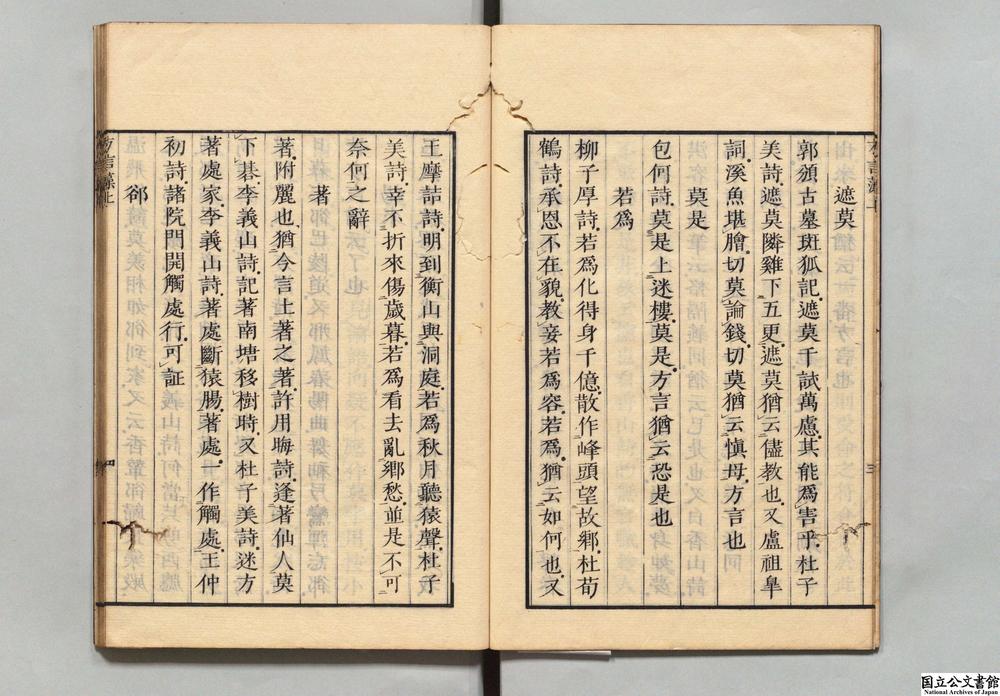 方言藻上
三
遮莫
郭頒古墓斑狐記遮莫千試萬慮其能爲害乎杜子
美詩遮莫隣雞下五更遮莫猶云儘教也又盧祖皐
詞溪魚堪膾切莫論錢切莫猶云愼毋方言也
莫是
包何詩莫是上迷樓莫是方言猶云恐是也
若爲
柳子厚詩若爲化得身千億散作峰頭望故鄉杜荀
鶴詩承恩不在貌教妾若爲容若爲猶云如何也又
王摩詰詩明到衡山與洞庭若爲秋月聽猿聲杜子
美詩幸不折來傷歲暮若爲看去亂鄉愁並是不可
奈何之辭
著
著附麗也猶今言土著之著許用晦詩逢著仙人莫
下碁李義山詩記著南塘移樹時又杜子美詩迷方
著處家李義山詩著處斷猿腸著處一作觸處王仲
初詩諸院門開觸處行可証
郤
方言藻上
四
国立公文書館
National Archives of Japan